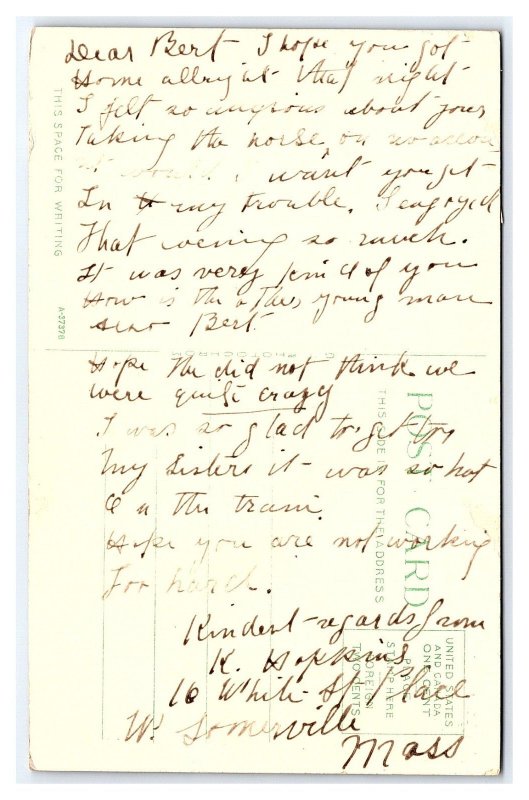 Dear Bert I hope you got
Home allright that night
I felt so anxious about your
Taking the horse, on no accou
nt would I want you get
In to my trouble. I enjoyed
That evening so much.
It was very kind of you
How is the other young man
also Bert.
Hope he did not think we
were quite crazy
I was so glad to get to
my sisters it was so hot
on the train.
Hope you are not working
For hard.
Kindest regards from
K. Hopkins
16 White St Place
W. Somerville
Mass
THIS SPACE FOR WRITING
A-37378
POST CARD
THIS SIDE IS FOR THE ADDRESS
UNITED STATES
AND CANADA
ONE CENT
STAMP HERE
FOREIGN
TWO CENTS